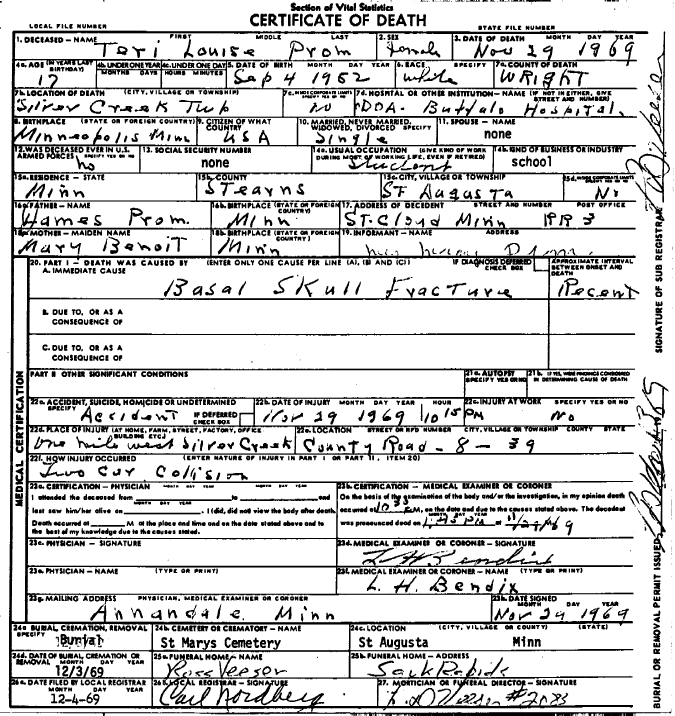 Section of Vital Statistics
CERTIFICATE OF DEATH
LOCAL FILE NUMBER STATE FILE NUMBER
1. DECEASED - NAME FIRST MIDDLE LAST 2. SEX 3. DATE OF DEATH MONTH DAY YEAR
Teri Louise Prom female Nov 29 1969
4A. AGE (IN YEARS LAST BIRTHDAY) 4B. UNDER ONE YEAR MONTHS DAYS 4C. UNDER ONE DAY HOURS MINUTES 5. DATE OF BIRTH MONTH DAY YEAR 6. RACE 7A. COUNTY OF DEATH
17 Sep 4 1952 White WRIGHT
7B. LOCATION OF DEATH (CITY, VILLAGE OR TOWNSHIP) 7C. INSIDE CORPORATE LIMITS SPECIFY YES OR NO 7D. HOSPITAL OR OTHER INSTITUTION - NAME (IF NOT IN EITHER, GIVE STREET AND NUMBER)
Silver Creek Twp No DOA - Buffalo Hospital.
8. BIRTHPLACE (STATE OR FOREIGN COUNTRY) 9. CITIZEN OF WHAT COUNTRY 10. MARRIED, NEVER MARRIED, WIDOWED, DIVORCED SPECIFY 11. SPOUSE - NAME
Minneapolis Minn USA Single none
12. WAS DECEASED EVER IN U.S. ARMED FORCES SPECIFY YES OR NO 13. SOCIAL SECURITY NUMBER 14A. USUAL OCCUPATION (GIVE KIND OF WORK DURING MOST OF WORKING LIFE, EVEN IF RETIRED) 14B. KIND OF BUSINESS OR INDUSTRY
no none Student school
15A. RESIDENCE - STATE 15B. COUNTY 15C. CITY, VILLAGE OR TOWNSHIP 15D. INSIDE CORPORATE LIMITS SPECIFY YES OR NO
Minn Stearns St Augusta No
16A. FATHER - NAME 16B. BIRTHPLACE (STATE OR FOREIGN COUNTRY) 17. ADDRESS OF DECEDENT STREET AND NUMBER POST OFFICE
Hames Prom. Minn St. Cloud Minn RR 3
18A. MOTHER - MAIDEN NAME 18B. BIRTHPLACE (STATE OR FOREIGN COUNTRY) 19. INFORMANT - NAME ADDRESS
Mary Benoit Minn
20. PART I - DEATH WAS CAUSED BY (ENTER ONLY ONE CAUSE PER LINE (A), (B) AND (C)) IF DIAGNOSIS DEFERRED CHECK BOX APPROXIMATE INTERVAL BETWEEN ONSET AND DEATH
A. IMMEDIATE CAUSE
Basal Skull Fracture Recent
B. DUE TO, OR AS A CONSEQUENCE OF
C. DUE TO, OR AS A CONSEQUENCE OF
PART II OTHER SIGNIFICANT CONDITIONS 21A. AUTOPSY SPECIFY YES OR NO 21B. IF YES, WERE FINDINGS CONSIDERED IN DETERMINING CAUSE OF DEATH
22A. ACCIDENT, SUICIDE, HOMICIDE OR UNDETERMINED SPECIFY IF DEFERRED CHECK BOX 22B. DATE OF INJURY MONTH DAY YEAR HOUR 22C. INJURY AT WORK SPECIFY YES OR NO
Accident Nov 29 1969 10 15 PM No
22D. PLACE OF INJURY (AT HOME, FARM, STREET, FACTORY, OFFICE BUILDING ETC.) 22E. LOCATION STREET OR RFD NUMBER CITY, VILLAGE OR TOWNSHIP COUNTY STATE
One mile west Silver Creek County Road - 8 - 39
22F. HOW INJURY OCCURRED (ENTER NATURE OF INJURY IN PART I OR PART II, ITEM 20)
Two Car Collision
23A. CERTIFICATION - PHYSICIAN MONTH DAY YEAR MONTH DAY YEAR
I attended the deceased from to and
last saw him/her alive on . I (did, did not) view the body after death.
Death occurred at M at the place and time and on the date stated above and to the best of my knowledge due to the causes stated.
23B. CERTIFICATION - MEDICAL EXAMINER OR CORONER
On the basis of the examination of the body and/or the investigation, in my opinion death occurred at M, on the date and due to the causes stated above. The decedent was pronounced dead on
23C. PHYSICIAN - SIGNATURE 23D. MEDICAL EXAMINER OR CORONER - SIGNATURE
L H Bendix
23E. PHYSICIAN - NAME (TYPE OR PRINT) 23F. MEDICAL EXAMINER OR CORONER - NAME (TYPE OR PRINT)
L. H. Bendix
23G. MAILING ADDRESS PHYSICIAN, MEDICAL EXAMINER OR CORONER 23H. DATE SIGNED MONTH DAY YEAR
Annandale Minn Nov 29 1969
24A. BURIAL, CREMATION, REMOVAL SPECIFY 24B. CEMETERY OR CREMATORY - NAME 24C. LOCATION (CITY, VILLAGE OR COUNTY) (STATE)
Burial St Marys Cemetery St Augusta Minn
24D. DATE OF BURIAL, CREMATION OR REMOVAL MONTH DAY YEAR 25A. FUNERAL HOME - NAME 25B. FUNERAL HOME - ADDRESS
12/3/69 Sauk Rapids
26A. DATE FILED BY LOCAL REGISTRAR 26B. LOCAL REGISTRAR - SIGNATURE 27. MORTICIAN OR FUNERAL DIRECTOR - SIGNATURE
12-4-69 Carl Nordberg
MEDICAL CERTIFICATION
SIGNATURE OF SUB REGISTRAR
BURIAL OR REMOVAL PERMIT ISSUED